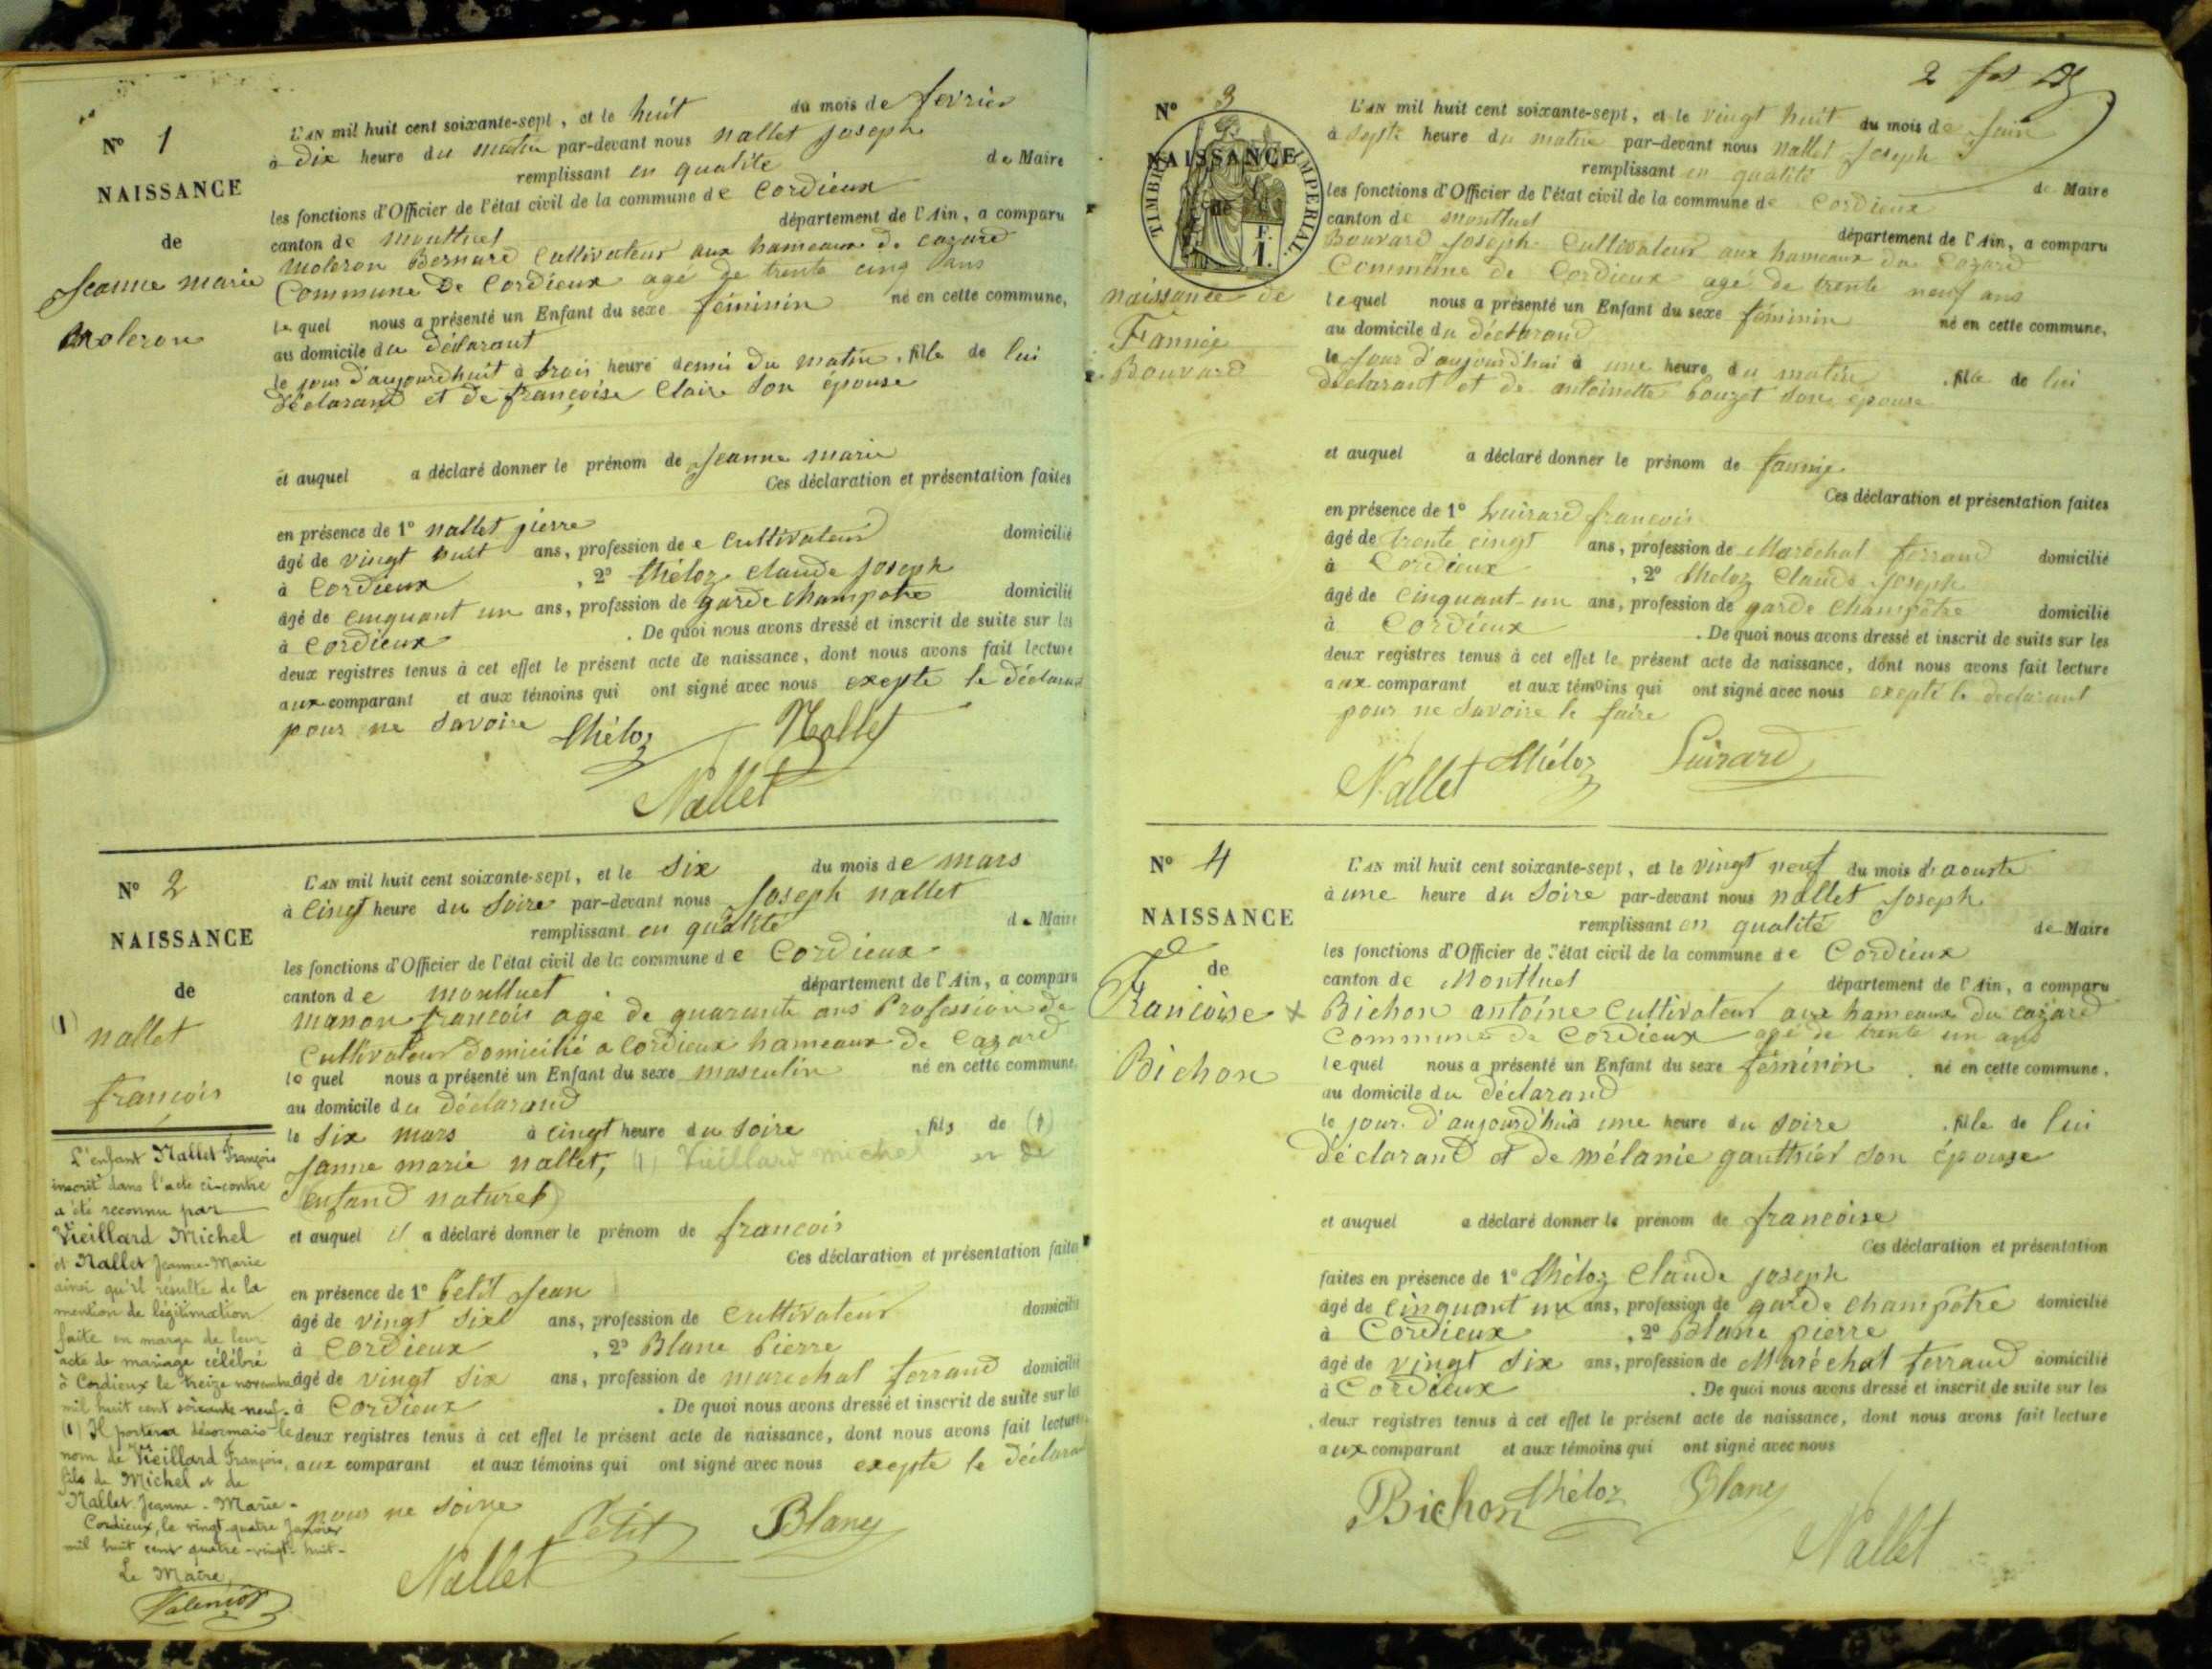 N° 1
NAISSANCE
de
Jeanne marie
Moleron
L'AN mil huit cent soixante-sept, et le huit du mois de fevrier
à Dix heure du matin par-devant nous nallet Joseph
remplissant en qualité de Maire
les fonctions d'Officier de l'état civil de la commune de Cordieux
canton de montluel département de l'Ain, a comparu
Moleron Bernard Cultivateur aux hameaux de cazard
Commune de Cordieux agé de trente cinq ans
lequel nous a présenté un Enfant du sexe féminin né en cette commune,
au domicile du déclarant
le jour d'aujourd'huit à trois heure demis du matin, fille de lui
déclarant et de françoise Claire son épouse
et auquel a déclaré donner le prénom de Jeanne marie
Ces déclaration et présentation faites
en présence de 1° nallet pierre
âgé de vingt huit ans, profession de e Cultivateur domicilié
à Cordieux , 2° théloz claude Joseph
âgé de cinquant un ans, profession de garde champetre domicilié
à Cordieux . De quoi nous avons dressé et inscrit de suite sur les
deux registres tenus à cet effet le présent acte de naissance, dont nous avons fait lecture
aux comparant et aux témoins qui ont signé avec nous exepte le déclarant
pour ne savoire
théloz Nallet
Nallet
N° 2
NAISSANCE
de
(1) nallet
françois
L'AN mil huit cent soixante-sept, et le Six du mois de mars
à Cingt heure du Soire par-devant nous Joseph nallet
remplissant en qualité de Maire
les fonctions d'Officier de l'état civil de la commune de Cordieux
canton de montluel département de l'Ain, a comparu
manon francois agé de quarante ans Profession de
Cultivateur domicilié a Cordieux hameaux de Cazard
lequel nous a présenté un Enfant du sexe masculin né en cette commune,
au domicile du déclarand
le Six mars à Cingt heure du Soire , fils de (1)
Janne marie nallet, (1) Vieillard michel et de
enfand naturel
et auquel il a déclaré donner le prénom de francois
Ces déclaration et présentation faites
en présence de 1° Petit Jean
âgé de vingt Six ans, profession de Cultivateur domicilié
à Cordieux , 2° Blanc Pierre
âgé de vingt Six ans, profession de marechal ferrand domicilié
à Cordieux . De quoi nous avons dressé et inscrit de suite sur les
deux registres tenus à cet effet le présent acte de naissance, dont nous avons fait lecture
aux comparant et aux témoins qui ont signé avec nous exepte le déclarand
pour ne
Petit Blanc
Nallet
L'enfant Nallet François
inscrit dans l'acte ci-contre
a été reconnu par
Vieillard Michel
et Nallet Jeanne-Marie
ainsi qu'il résulte de la
mention de légitimation
faite en marge de leur
acte de mariage célébré
à Cordieux le treize novembre
mil huit cent soixante-neuf.
(1) Il portera désormais le
nom de Vieillard François,
fils de Michel et de
Nallet Jeanne-Marie.
Cordieux, le vingt-quatre Janvier
mil huit cent quatre-vingt-huit.
Le Maire,
2
N° 3
NAISSANCE
de
TIMBRE IMPERIAL
1 F.
naissance de
Fannie
Bouvard
L'AN mil huit cent soixante-sept, et le vingt huit du mois de Juin
à Septe heure du matin par-devant nous nallet Joseph
remplissant en qualité de Maire
les fonctions d'Officier de l'état civil de la commune de Cordieux
canton de montluel département de l'Ain, a comparu
Bouvard Joseph Cultivateur aux hameaux du Cazard
Commune de Cordieux agé de trente neuf ans
lequel nous a présenté un Enfant du sexe féminin né en cette commune,
au domicile du déclarand
le Jour d'aujourd'hui à une heure du matin , fille de lui
déclarant et de antoinette Couzet son épouse
et auquel a déclaré donner le prénom de fannie
Ces déclaration et présentation faites
en présence de 1° Luirard francois
âgé de trente cingt ans, profession de Maréchal ferrand domicilié
à Cordieux , 2° théloz Claude Joseph
âgé de Cinquant-un ans, profession de garde Champêtre domicilié
à Cordieux . De quoi nous avons dressé et inscrit de suite sur les
deux registres tenus à cet effet le présent acte de naissance, dont nous avons fait lecture
aux comparant et aux témoins qui ont signé avec nous exepté le declarant
pour ne savoire le faire
Nallet théloz Luirard
N° 4
NAISSANCE
de
Francoise +
Bichon
L'AN mil huit cent soixante-sept, et le vingt neuf du mois d'aouste
à une heure du Soire par-devant nous nallet Joseph
remplissant en qualité de Maire
les fonctions d'Officier de l'état civil de la commune de Cordieux
canton de Montluel département de l'Ain, a comparu
Bichon antoine Cultivateur aux hameaux du cazard
Commune de Cordieux agé de trente un ans
lequel nous a présenté un Enfant du sexe féminin né en cette commune,
au domicile du déclarand
le jour d'aujourd'hui à une heure du soire , fille de lui
déclarand et de mélanie gauthier son épouse
et auquel a déclaré donner le prénom de francoise
Ces déclaration et présentation
faites en présence de 1° théloz Claude joseph
âgé de Cinquant un ans, profession de garde champêtre domicilié
à Cordieux , 2° Blanc pierre
âgé de vingt Six ans, profession de Maréchal ferrand domicilié
à Cordieux . De quoi nous avons dressé et inscrit de suite sur les
deux registres tenus à cet effet le présent acte de naissance, dont nous avons fait lecture
aux comparant et aux témoins qui ont signé avec nous
Bichon théloz Blanc
Nallet